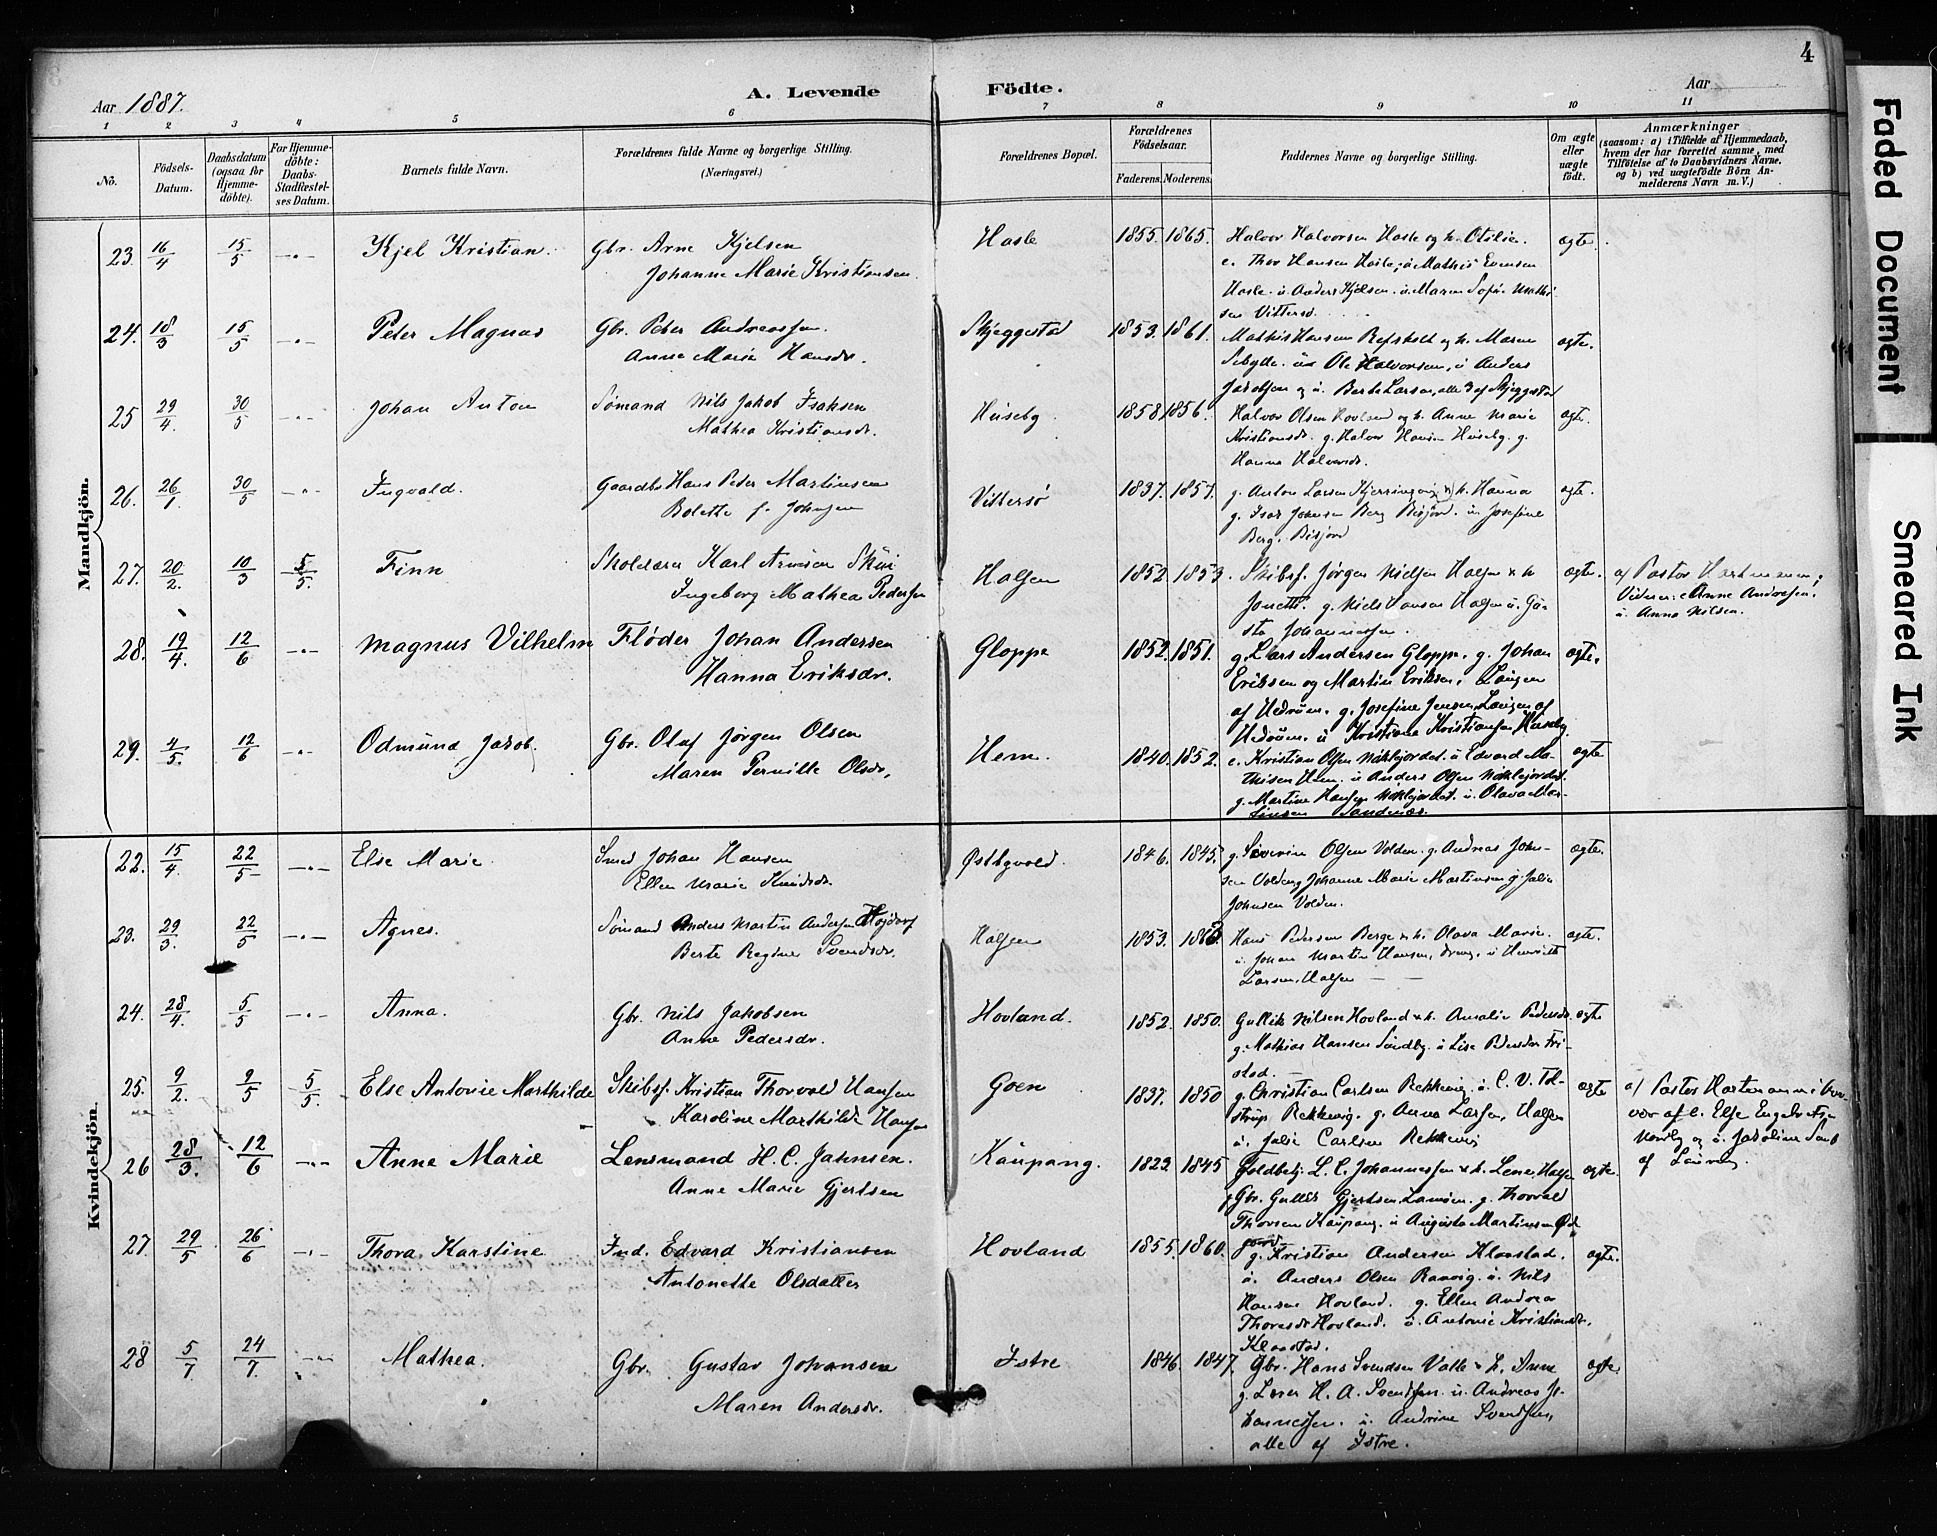 4
Aar 1887.
A. Levende Födte.
Aar
1 2 3 4 5 6 7 8 9 10 11
No.
Födsels-Datum.
Daabsdatum (ogsaa for Hjemme-döbte).
For Hjemme-döbte: Daabs-Stadfæstel-ses Datum.
Barnets fulde Navn.
Forældrenes fulde Navne og borgerlige Stilling. (Næringsvei.)
Forældrenes Bopæl.
Forældrenes Födselsaar.
Faderens. Moderens.
Faddernes Navne og borgerlige Stilling.
Om ægte eller uægte födt.
Anmærkninger
(saasom: a) i Tilfælde af Hjemmedaab, hvem der har forrettet samme, med Tilföielse af to Daabsvidners Navne. og b) ved uægtefödte Börn Anmelderens Navn m. V.)
Mandkjön.
23. 16/4 15/5 -"- Kjel Kristian. Gbr. Arne Kjelsen Hasle 1855. 1865. Halvor Halvorsen Hasle og h. Otilie. ægte.
Johanne Marie Kristiansen. e. Thor Hansen Hasle, u Mathis Evensen
Hasle. u Anders Kjelsen. u Maren Sofie Mathi-
sen Vittersø.
24. 18/3 15/5 -"- Peter Magnus Gbr. Peter Andreassen. Skjeggestad 1853. 1861. Mathis Hansen Refsholt og h. Maren ægte.
Anne Marie Hansdr. Sebylle. u Ole Halvorsen, u Anders
Jacobsen og u. Berte Larsen, alle 3 af Skjeggestad
25 29/4. 30/5 -"- Johan Anton Sømand Nils Jakob Isaksen Huseby 1858 1856. Halvor Olsen Hovland og h. Anne Marie ægte.
Mathea Kristiansdr. Kristiansdr. g. Halvor Hansen Huseby. g.
Hanna Halvorsdr.
26. 26/1. 30/5 -"- Ingvald. Gaardbr Hans Peder Martinsen Vittersø 1837. 1857. g. Anton Larsen Kjerringvig og h. Hanna ægte.
Bolette f. Johnsen g. Isak Johnsen Berg. u Josefine
Berg.
27. 20/2. 10/3 5/5. Finn Skolelærer Karl Arnesen Skui Halsen 1852. 1853. Skibsf. Jørgen Nielsen Halsen & h ægte. af Pastor Hartmann;
Ingeborg Mathea Pedersen Jonette. g. Niels Hansen Halsen u. Gu- Vidner: e Anne Andresen.
sta Johannessen. u. Anna Nilsen.
28. 19/4. 12/6 -"- Magnus Vilhelm Fløder Johan Andersen Gloppe 1852. 1851. g. Lars Andersen Gloppe. g. Johan ægte.
Hanna Eriksdr. Eriksen og Martin Eriksen, Laugen
af Hedrum. g. Josefine Jensen, Laugen af
Hedrum. u Kristiane Kristiansen Huseby
29. 4/5. 12/6 -"- Odmund Jakob. Gbr. Olaf Jørgen Olsen Hem. 1840. 1852. e. Kristian Olsen Nøklegjordet. u Edvard Ma- ægte
Maren Pernille Olsdr, thisen Hem. u Anders Olsen Nøklegjordet.
g. Martine Hansen Nøklegjordet. u. Olava Mar-
tinsen Sandenæs.
Kvindekjön.
22. 15/4. 22/5 -"- Else Marie. Smed Johan Hansen Østbyvold. 1846. 1845. g. Severin Olsen Volden. g. Andreas John- ægte.
Ellen Marie Knudsdr. sen Volden g Johanne Marie Martinsen g Julie
Johnsen Volden.
23. 29/3. 22/5 -"- Agnes. Sømand Anders Martin Andersen Halsen 1853. Hans Pedersen Berge & h. Olava Marie. ægte.
Berte Regine Svendsdr. u. Johan Martin Hansen, dreng. u Henriette
Larsen, Halsen
24. 28/4. 5/5 -"- Anna. Gbr. Nils Jakobsen Hovland. 1852. 1850. Gullik Nilsen Hovland & h. Amalie Pedersdr. ægte
Anne Pedersdr. g. Mathias Hansen Sundby. u Lise Pedersdr Fri-
stad.
25. 9/2. 9/5 5/5. Else Antonie Marthilde Skibsf. Kristian Thorvald Hansen Goen 1837. 1850 g. Christian Carlsen Rekkevig. u. C. V. Td- ægte af Pastor Hartmann i
Karoline Marthilde Hansen strup Rekkevig. g. Anna Larsen, Halsen af e. Else Engebretsen
u. Julie Carlsen Rekkevig og u. Jakoline
26 28/3. 12/6 -"- Anne Marie Lensmand H. C. Jahnsen. Kaupang. 1822. 1845 Toldbetj. L. C. Johannessen & h. Lene, Halsen ægte. af Laurvig.
Anne Marie Gjertsen g Gbr. Gullik Gjertsen, Lamøen. g. Thorvald
Thorsen Kaupang. u Augusta Martinsen Ød-
gord.
27. 29/5 26/6 -"- Thora Karstine Ind. Edvard Kristiansen Hovland 1855. 1860. g. Kristian Andersen Klaastad. ægte.
Antonette Olsdatter u. Anders Olsen Ranvig. u. Nils
Hansen Hovland. g. Ellen Andrea
Thoresdr Hovland. u. Antonie Kristiansdr.
Klaastad.
28 5/7 24/7. -"- Mathea. Gbr. Gustav Johansen Istre 1846. 1847. Gbr. Hans Svendsen Valle & h. Anne ægte
Maren Andersdr. g. Lærer H. A. Svendsen. u. Andreas Jo-
hannessen. u. Andrine Svendsen,
alle af Istre.
Faded Document
Smeared Ink